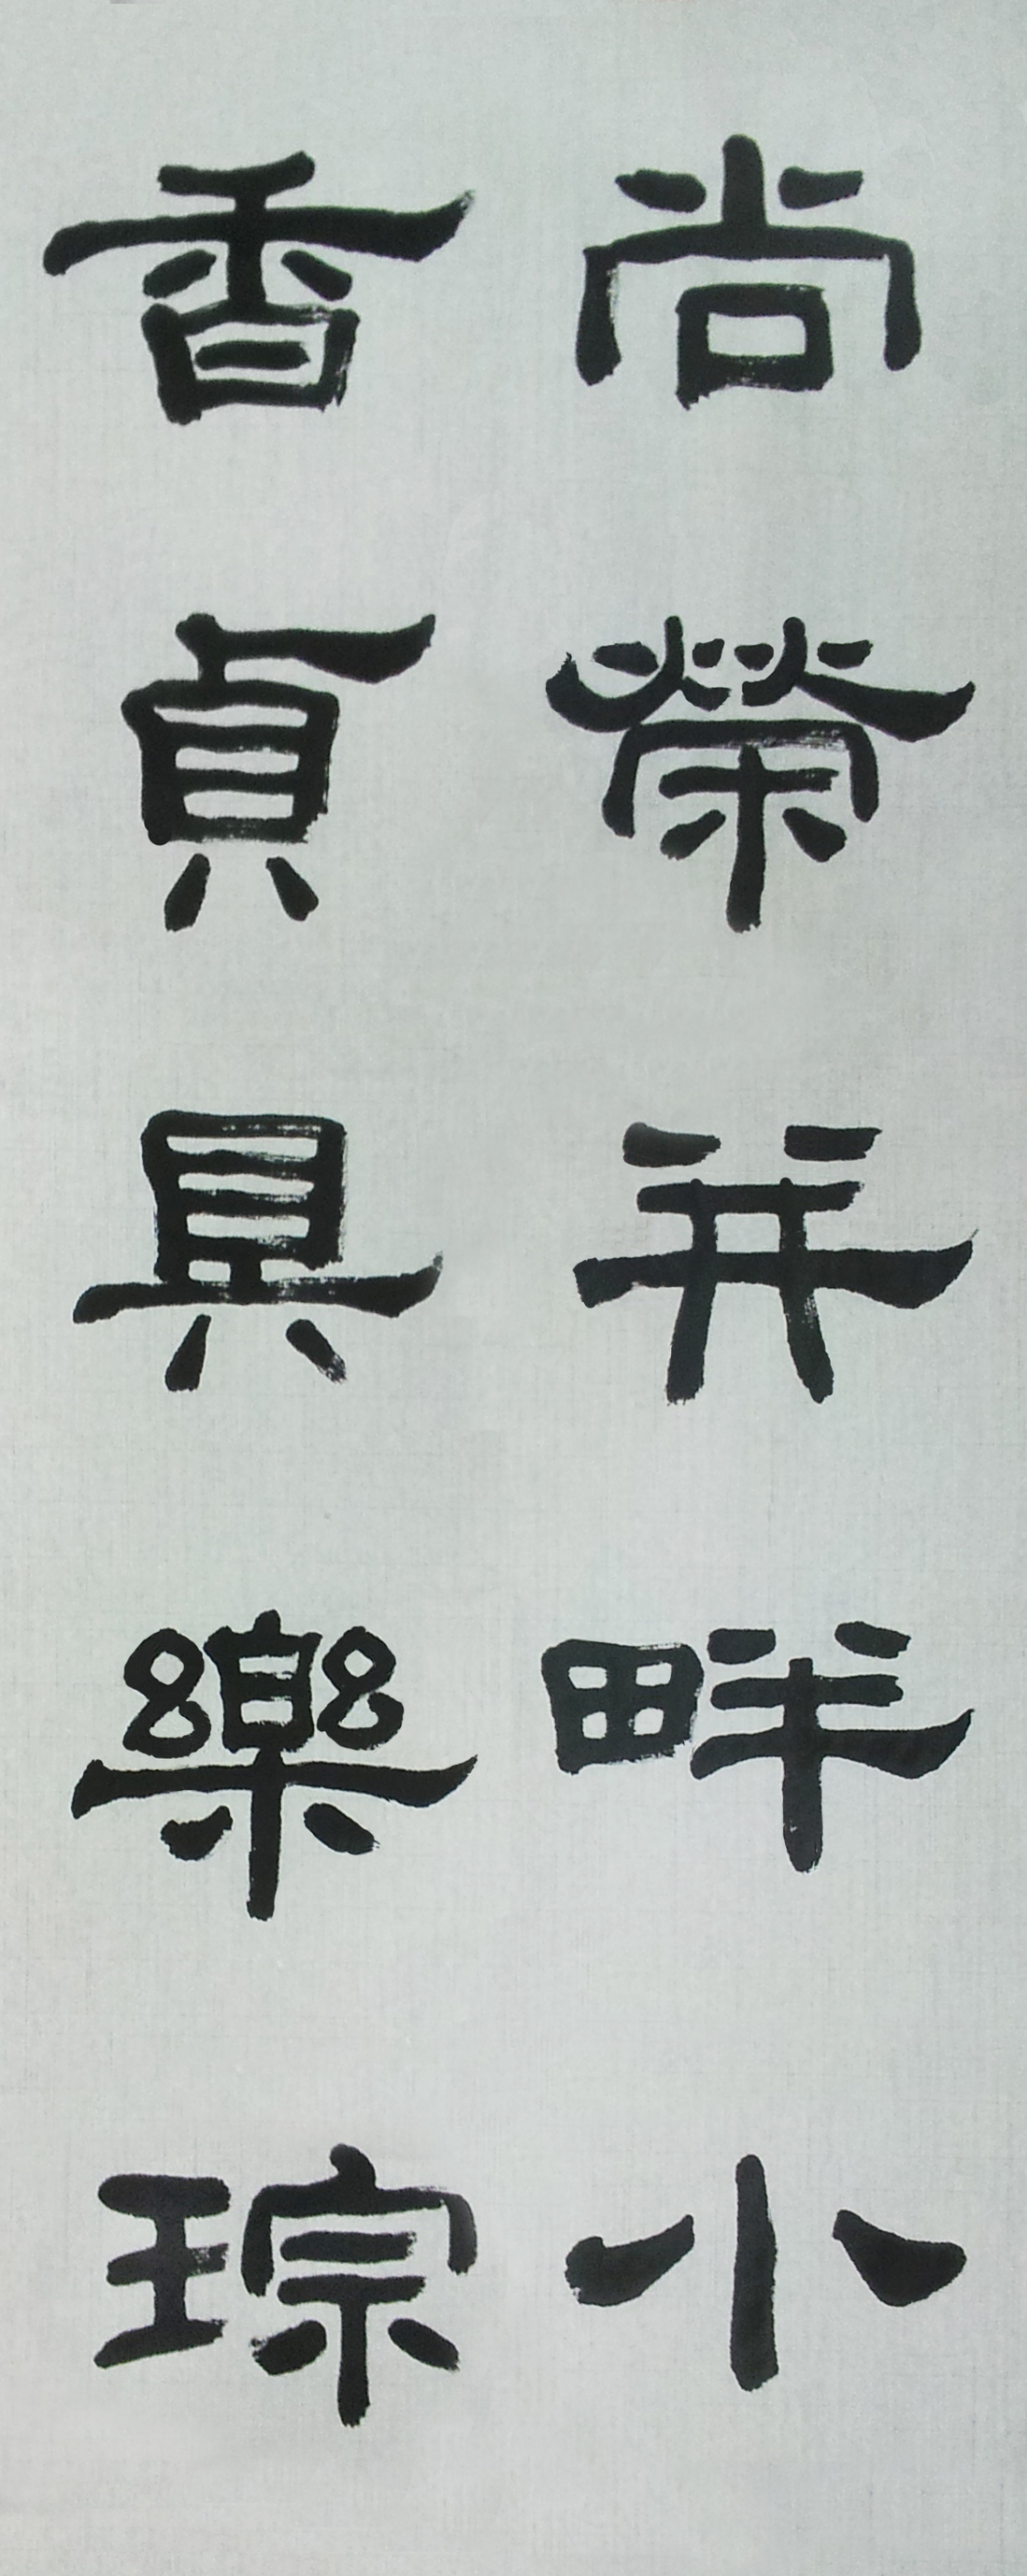 尚榮并畔小
香貞具樂琮